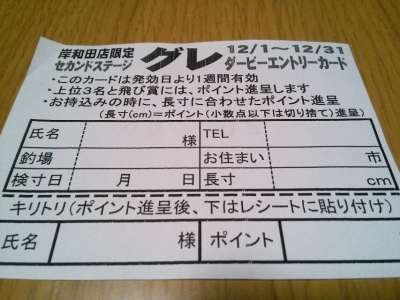 岸和田店限定
セカンドステージ
グレ
12/1〜12/31
ダービーエントリーカード
・このカードは発効日より1週間有効
・上位3名と飛び賞には、ポイント進呈します
・お持込みの時に、長寸に合わせたポイント進呈
(長寸(cm)=ポイント(小数点以下は切り捨て)進呈)
氏名 様 TEL
釣場 お住まい 市
検寸日 月 日 長寸 cm
キリトリ(ポイント進呈後、下はレシートに貼り付け)
氏名 様 ポイント